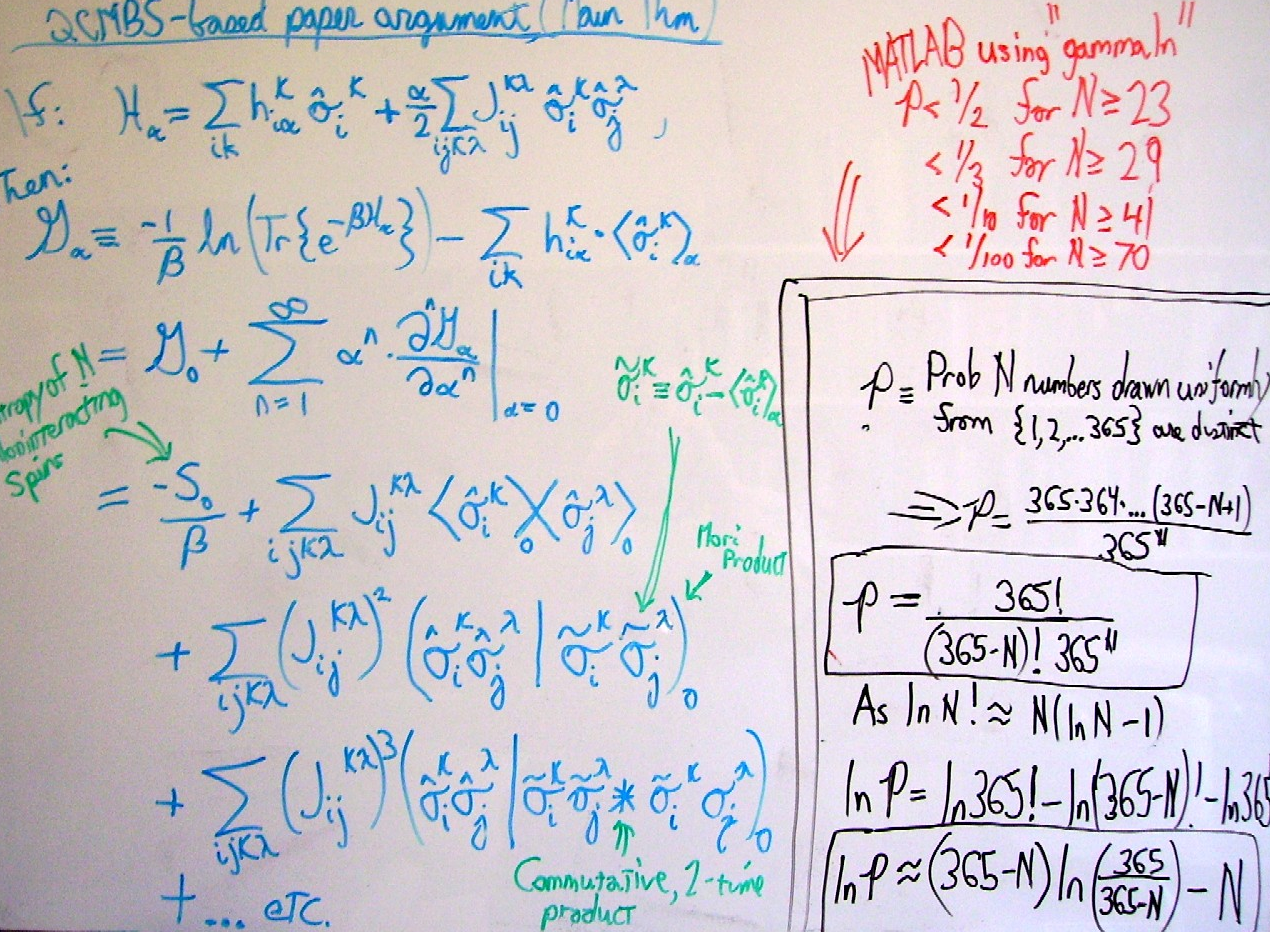 2CMBS-based paper argument, (Main Thm)
If: H_α = Σ_{iκ} h_{iα}^κ σ̂_i^κ + α/2 Σ_{ijκλ} J_{ij}^{κλ} σ̂_i^κ σ̂_j^λ ,
Then:
𝒢_α ≡ -1/β ln(Tr{e^{-βH_α}}) - Σ_{iκ} h_{iα}^κ · <σ̂_i^κ>_α
= 𝒢_0 + Σ_{n=1}^∞ α^n · ∂^n 𝒢_α / ∂α^n |_{α=0}
σ̃_i^κ ≡ σ̂_i^κ - <σ̂_i^κ>_α
tropy of N
Noninteracting
Spins
= -S_0/β + Σ_{ijκλ} J_{ij}^{κλ} <σ̂_i^κ>_0 <σ̂_j^λ>_0
Mori
Product
+ Σ_{ijκλ} (J_{ij}^{κλ})^2 (σ̂_i^κ σ̂_j^λ | σ̃_i^κ σ̃_j^λ)_0
+ Σ_{ijκλ} (J_{ij}^{κλ})^3 (σ̂_i^κ σ̂_j^λ | σ̃_i^κ σ̃_j^λ * σ̃_i^κ σ_j^λ)_0
Commutative, 2-time
product
+ ... etc.
MATLAB using "gammaln"
p < 1/2 for N ≥ 23
< 1/3 for N ≥ 29
< 1/10 for N ≥ 41
< 1/100 for N ≥ 70
p ≡ Prob N numbers drawn uniformly
from {1,2,...365} are distinct
⇒ p = 365·364·...(365-N+1) / 365^N
p = 365! / (365-N)! 365^N
As ln N! ≈ N(ln N - 1)
ln p = ln 365! - ln(365-N)! - ln 365
ln p ≈ (365-N) ln(365/(365-N)) - N